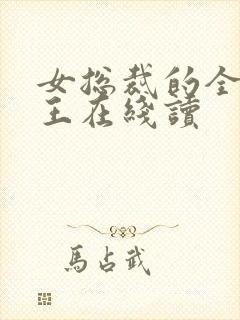 女总裁的全
王在綫讀
馬占武